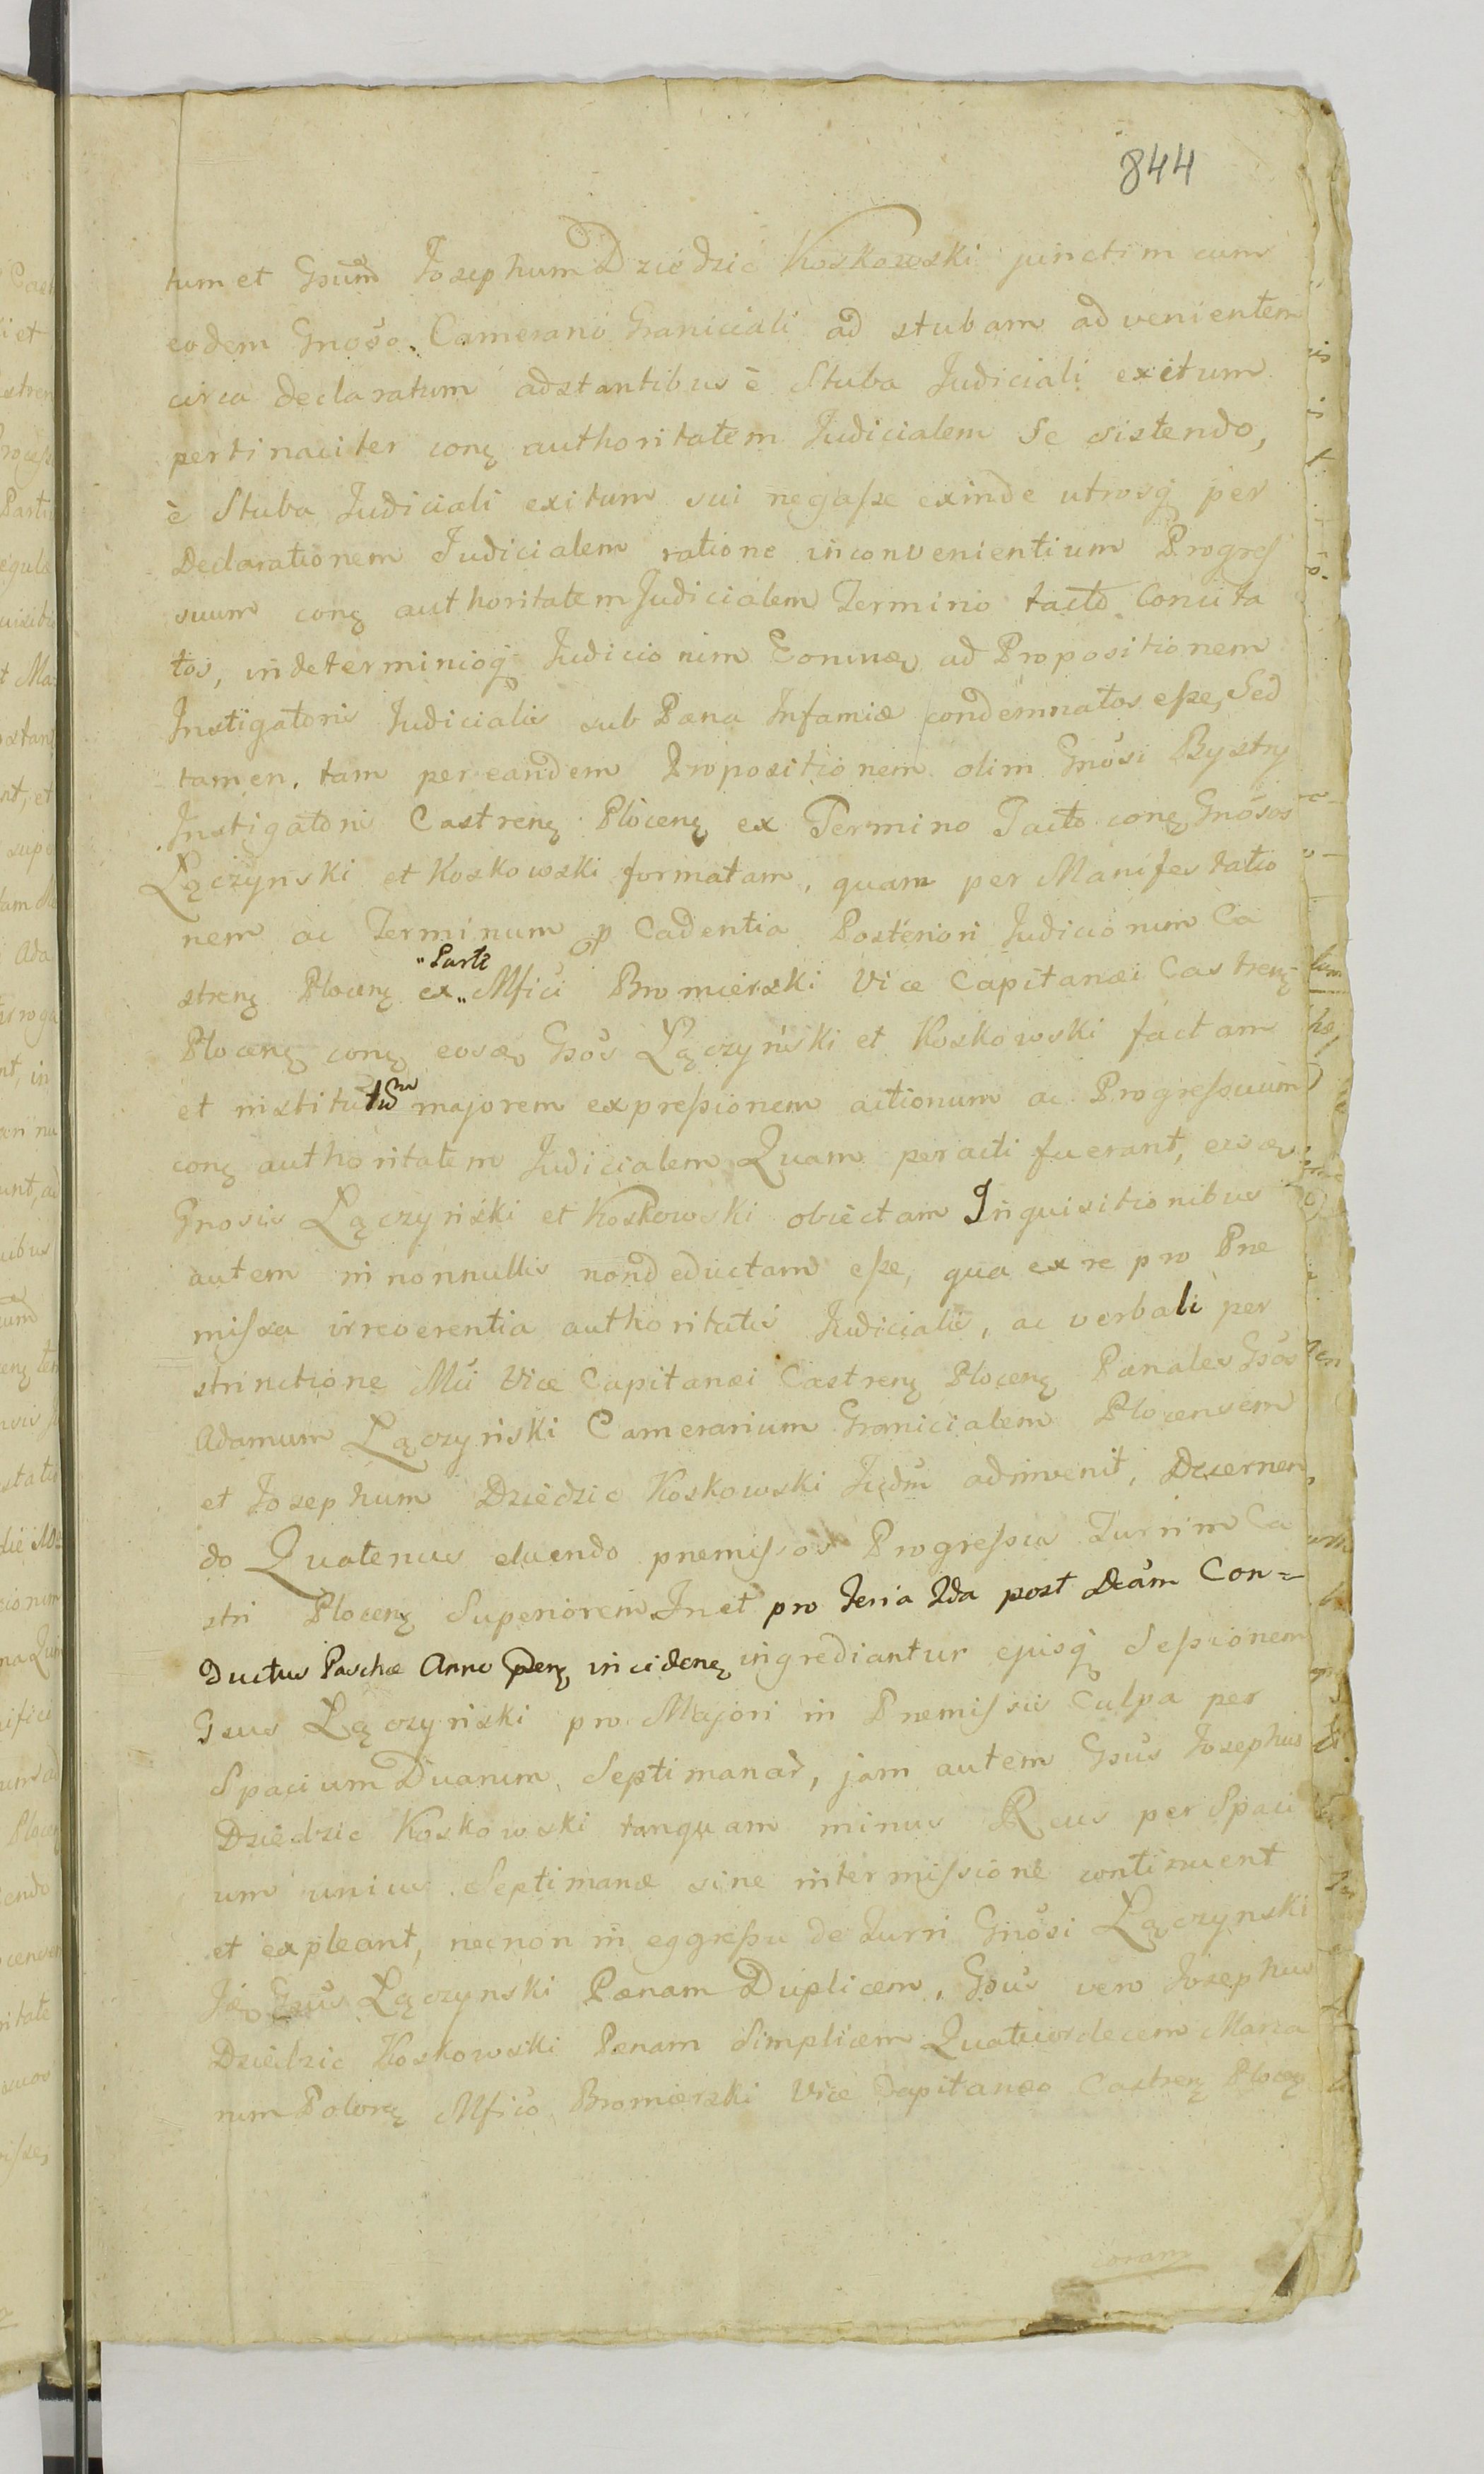 844
tum et Gsum Josephum Dziedzic Koskowski junctim cum
eodem Gnoso Camerario Graniciali ad stubam advenientem
circa declaratum adstantibus è Stuba Judiciali exitum
pertinaciter conq authoritatem Judicialem Se sistendo,
è Stuba Judiciali exitum sui negasse exinde utrosq per
Declarationem Judicialem ratione inconvenientium Progres
suum conq authoritatem Judicialem Termino tacto Concita
tos, in determinioq Judiciorum ad Propositionem
Instigatoris Judicialis sub Pæna Infamiæ condemnatos esse, Sed
tamen, tam per eandem Propositionem olim Gnosi Bystry
Instigatoris Castrenq Plocenq ex Termino Tacto conq Gnosos
Łączynski et Koskowski formatam, quam per Manifestatio
nem ac Terminum p Cadentia Posteriori Judiciorum Ca
strenq Plocenq ex Parte Mfici Bromierski Vice Capitanei Castrenq
Plocenq conq eosd Gsos Łączyński et Koskowski factam
et institutum majorem expressionem actionum ac Progressuum
conq authoritatem Judicialem Quam peracti fuerant, eisd
Gnosis Łączyński et Koskowski obiectam Inquisitionibus
autem in nonnullis non deductam esse, qua ex re pro Præ
missa irreverentia authoritatis Judicialis, ac verbali per
strinctione Mci Vice Capitanei Castrenq Plocenq Pænales Gsos
Adamum Łączyński Camerarium Granicialem Plocensem
et Josephum Dziedzic Koskowski Judm adinvenit, Decernen
do Quatenus eluendo præmissos Progressus Turrim Ca
stri Plocenq Superiorem In et pro feria 2da post Dcam Con=
Ductus Paschæ Anno Præsenq incidenq ingrediantur ejusq Sessionem
Gsus Łączyński pro Majori in Præmissis Culpa per
Spacium Duarum Septimanar, jam autem Gsus Josephus
Dziedzic Koskowski tanquam minus Reus per Spaci
um unius Septimanæ sine intermissione continuent
et expleant, necnon in eggressu de Turri Gnosi Łączynski
Id Gsus Łączynski Pænam Duplicem, Gsus vero Josephus
Dziedzic Koskowski Pænam Simplicem Quatuordecem Marca
rum Polonq Mfico Bromierski Vice Capitaneo Castrenq Plocenq
coram